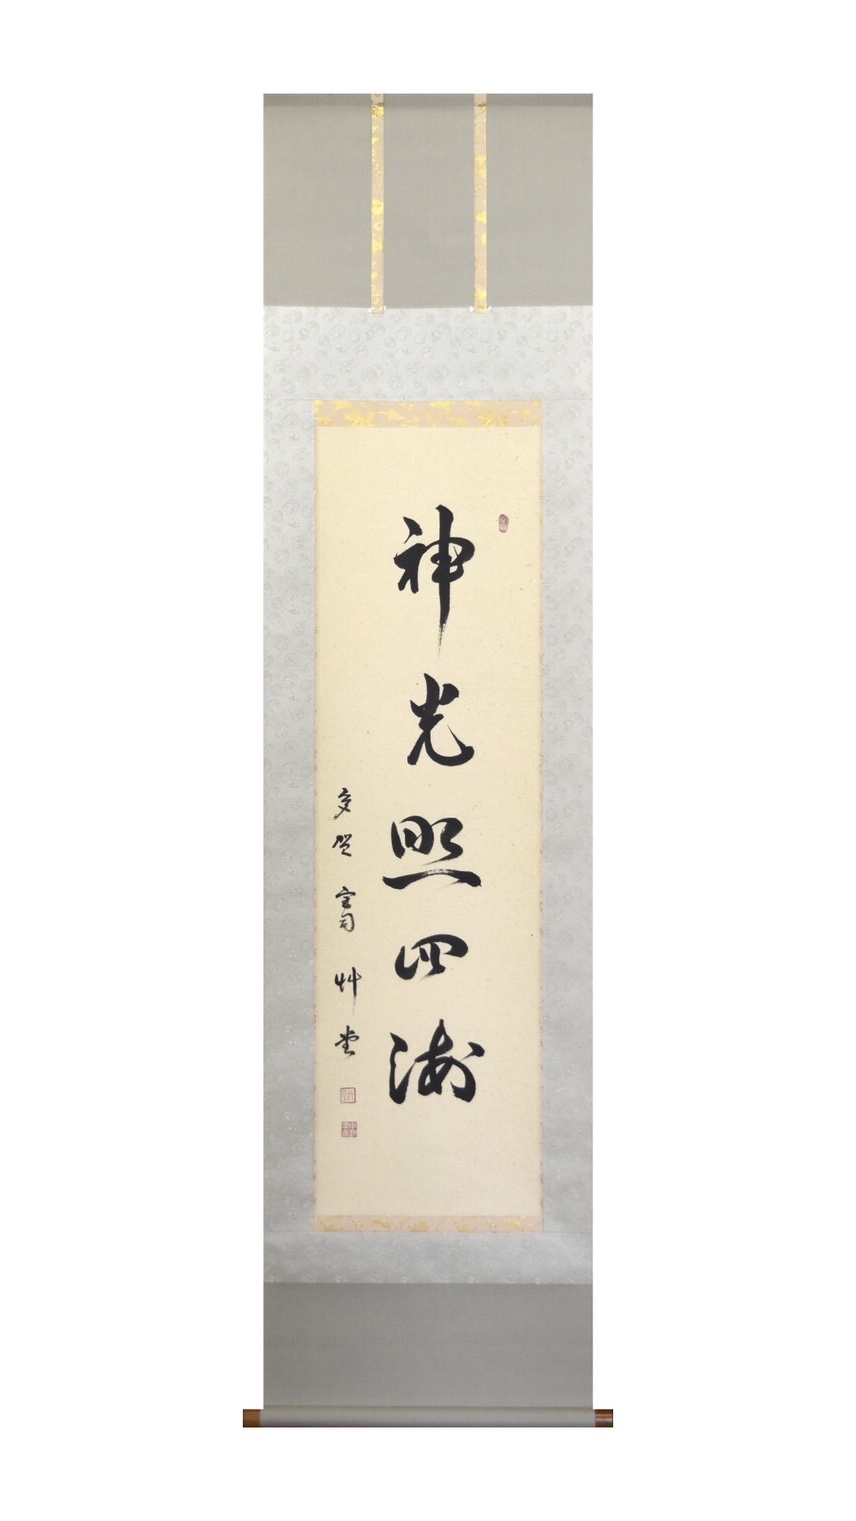 神光照四海
多賀宮司 艸堂